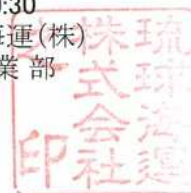 :30
海運(株)
業部
琉球海運
株式会社
之印